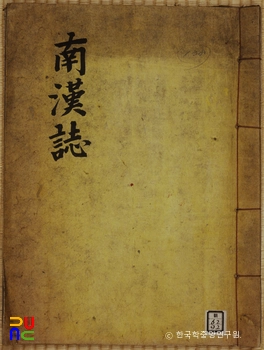 南漢誌
© 한국학중앙연구원.